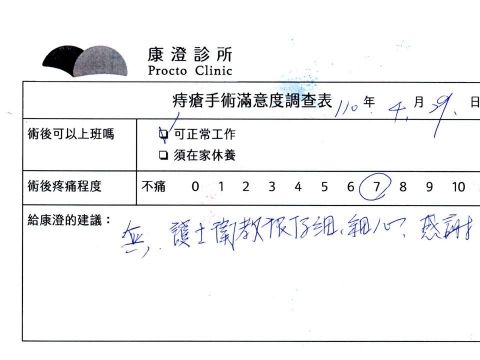 康澄診所
Procto Clinic
痔瘡手術滿意度調查表 110年 4月 29日
術後可以上班嗎
可正常工作
須在家休養
術後疼痛程度 不痛 0 1 2 3 4 5 6 7 8 9 10
給康澄的建議：
無, 護士衛教很仔細、細心, 感謝